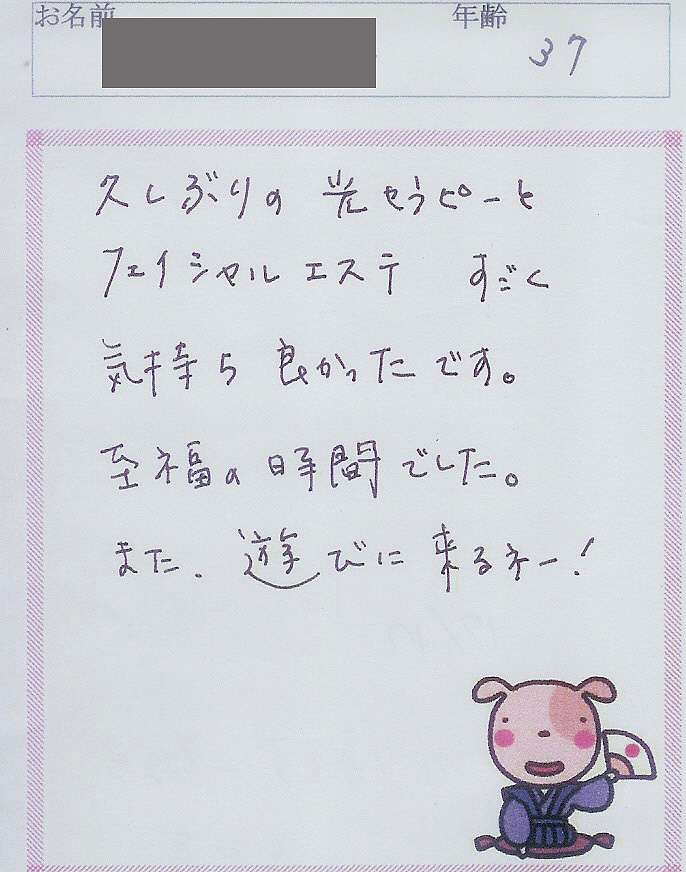 お名前 年齢 37
久しぶりの 光セラピーと
フェイシャルエステ すごく
気持ち良かったです。
至福の時間でした。
また、遊びに来るネー!